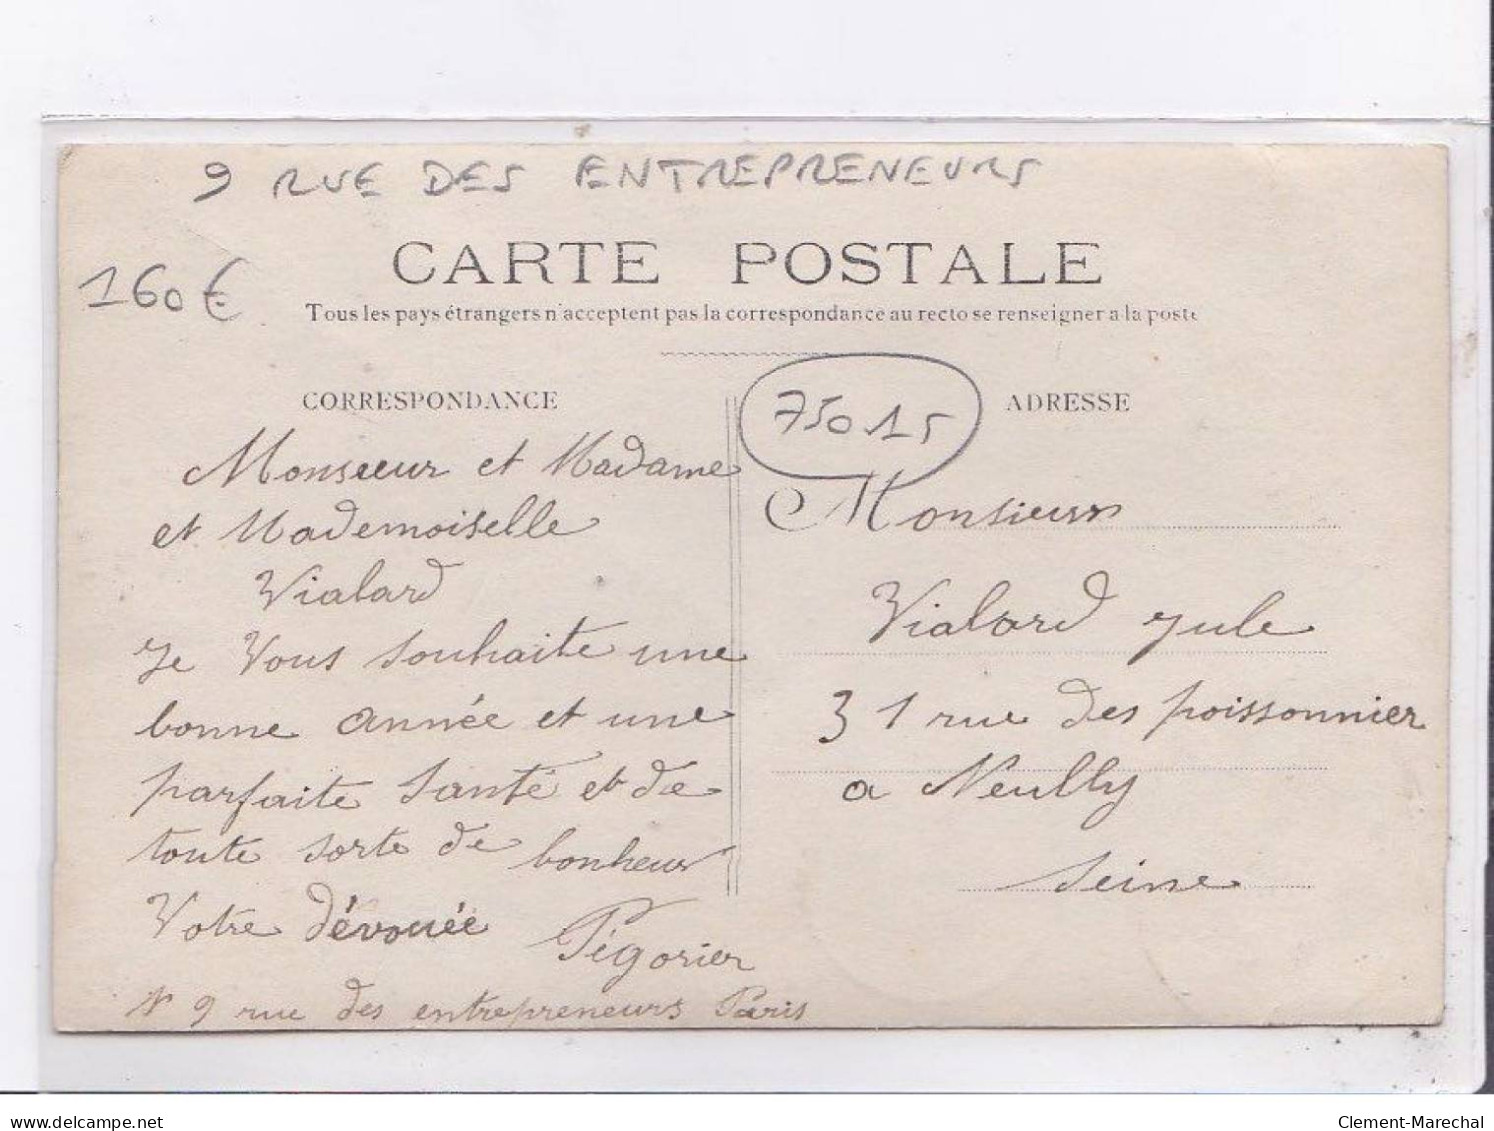 9 RUE DES ENTREPRENEURS
160€
CARTE POSTALE
Tous les pays étrangers n'acceptent pas la correspondance au recto se renseigner a la poste
CORRESPONDANCE
Monsieur et Madame
et Mademoiselle
Vialard
Je Vous souhaite une
bonne année et une
parfaite Santé et de
toute sorte de bonheur
Votre dévouée Pégorier
N 9 rue des entrepreneurs Paris
75015
ADRESSE
Monsieur
Vialard Jule
31 rue des poissonnier
a Neully
Seine
delcampe.net
Clement-Marechal